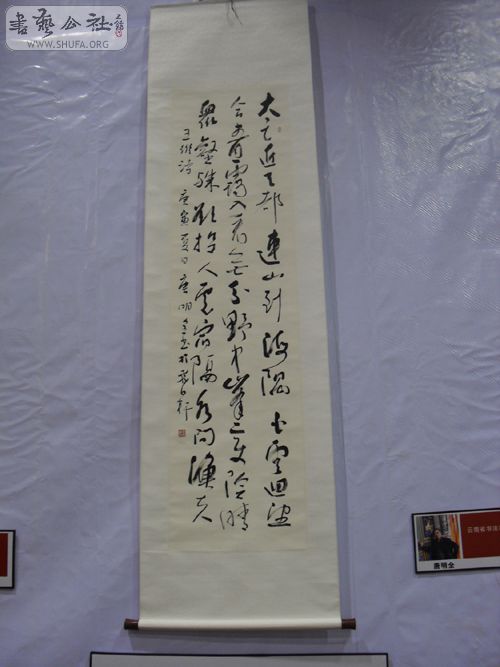 書藝公社
WWW.SHUFA.ORG
太乙近天都連山到海隅白雲迴望
合青靄入看無分野中峰變陰晴
眾壑殊欲投人處宿隔水問樵夫
王維詩 庚寅夏日唐明全書於白軒
云南省书法
唐明全